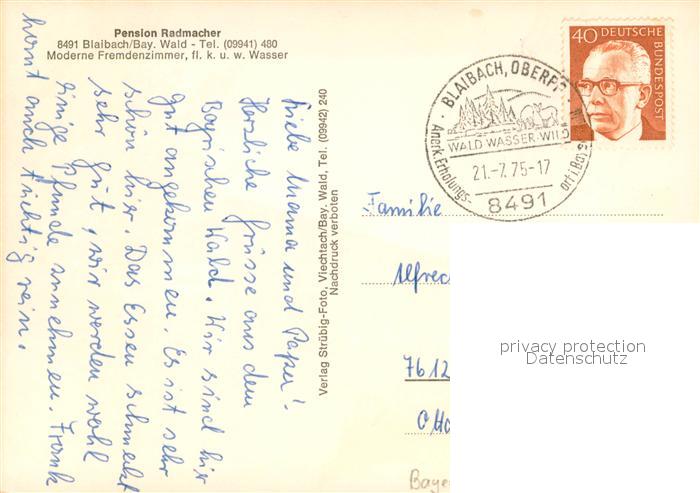 Pension Radmacher
8491 Blaibach/Bay. Wald - Tel. (09941) 480
Moderne Fremdenzimmer, fl. k. u. w. Wasser
Liebe Mama und Papa!
Herzliche Grüsse aus dem
Bayrischen Wald. Wir sind hir
gut angekommen. Es ist sehr
schön hier. Das Essen schmeckt
sehr gut, wir werden wohl
einige Pfunde zunehmen. Frank
haut auch tüchtig rein.
Verlag Strübig-Foto, Viechtach/Bay. Wald, Tel. (09942) 240
Nachdruck verboten
40 DEUTSCHE
BUNDESPOST
BLAIBACH, OBERPF
WALD-WASSER-WILD
21.-7.75-17
Anerk. Erholungs-
ort i. Bay
8491
Familie
Alfred
7612
Bayer
privacy protection
Datenschutz